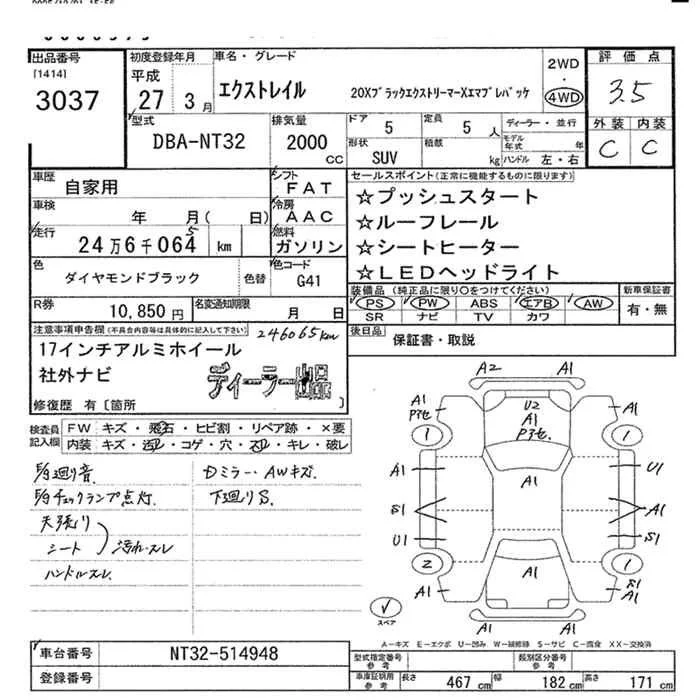 出品番号
[1414]
3037
初度登録年月
平成
27 3月
車名・グレード
エクストレイル
20XブラックエクストリーマーXエマブレパッケ
2WD
・
4WD
評価点
3.5
外装 内装
C C
型式
DBA-NT32
排気量
2000
CC
ドア 5
定員 5 人
形状 SUV
積載 kg
ディーラー・並行
モデル年式 年
ハンドル 左・右
車歴
自家用
車検
年 月( 日)
走行
24万6千064 km
5
シフト
FAT
冷房
AAC
燃料
ガソリン
色
ダイヤモンドブラック
色替
色コード
G41
R券
10,850円
名変通知期限
月 日
セールスポイント(正常に機能するものに限ります)
☆プッシュスタート
☆ルーフレール
☆シートヒーター
☆LEDヘッドライト
装備品 (純正品に限り○をつけてください)
PS PW ABS エアB AW
SR ナビ TV カワ
新車保証書
有・無
後日品
保証書・取説
注意事項申告欄(不具合内容等は具体的に記入して下さい)
246065km
17インチアルミホイール
社外ナビ
ディーラー出品
修復歴 有〔箇所 〕
検査員記入欄
FW キズ・飛石・ヒビ割・リペア跡・×要
内装 キズ・汚レ・コゲ・穴・スレ・キレ・破レ
廻り音
チェックランプ点灯
天張り
シート
汚れ・スレ
ハンドルスレ
Dミラー・AWキズ
下廻りS
A2 A1
A1 U2 A1
Pヌケ A1
1 Pヌケ 1
A1 A1 U1
S1 A1
U1 S1
2 A1 1
A1 S1
A1
A1 A1
スペア
A=キズ E=エクボ U=凹み W=補修跡 S=サビ C=腐食 XX=交換済
車台番号
NT32-514948
登録番号
型式指定番号
参考
類別区分番号
参考
車庫証明用
参考
長さ 467cm 幅 182cm 高さ 171cm